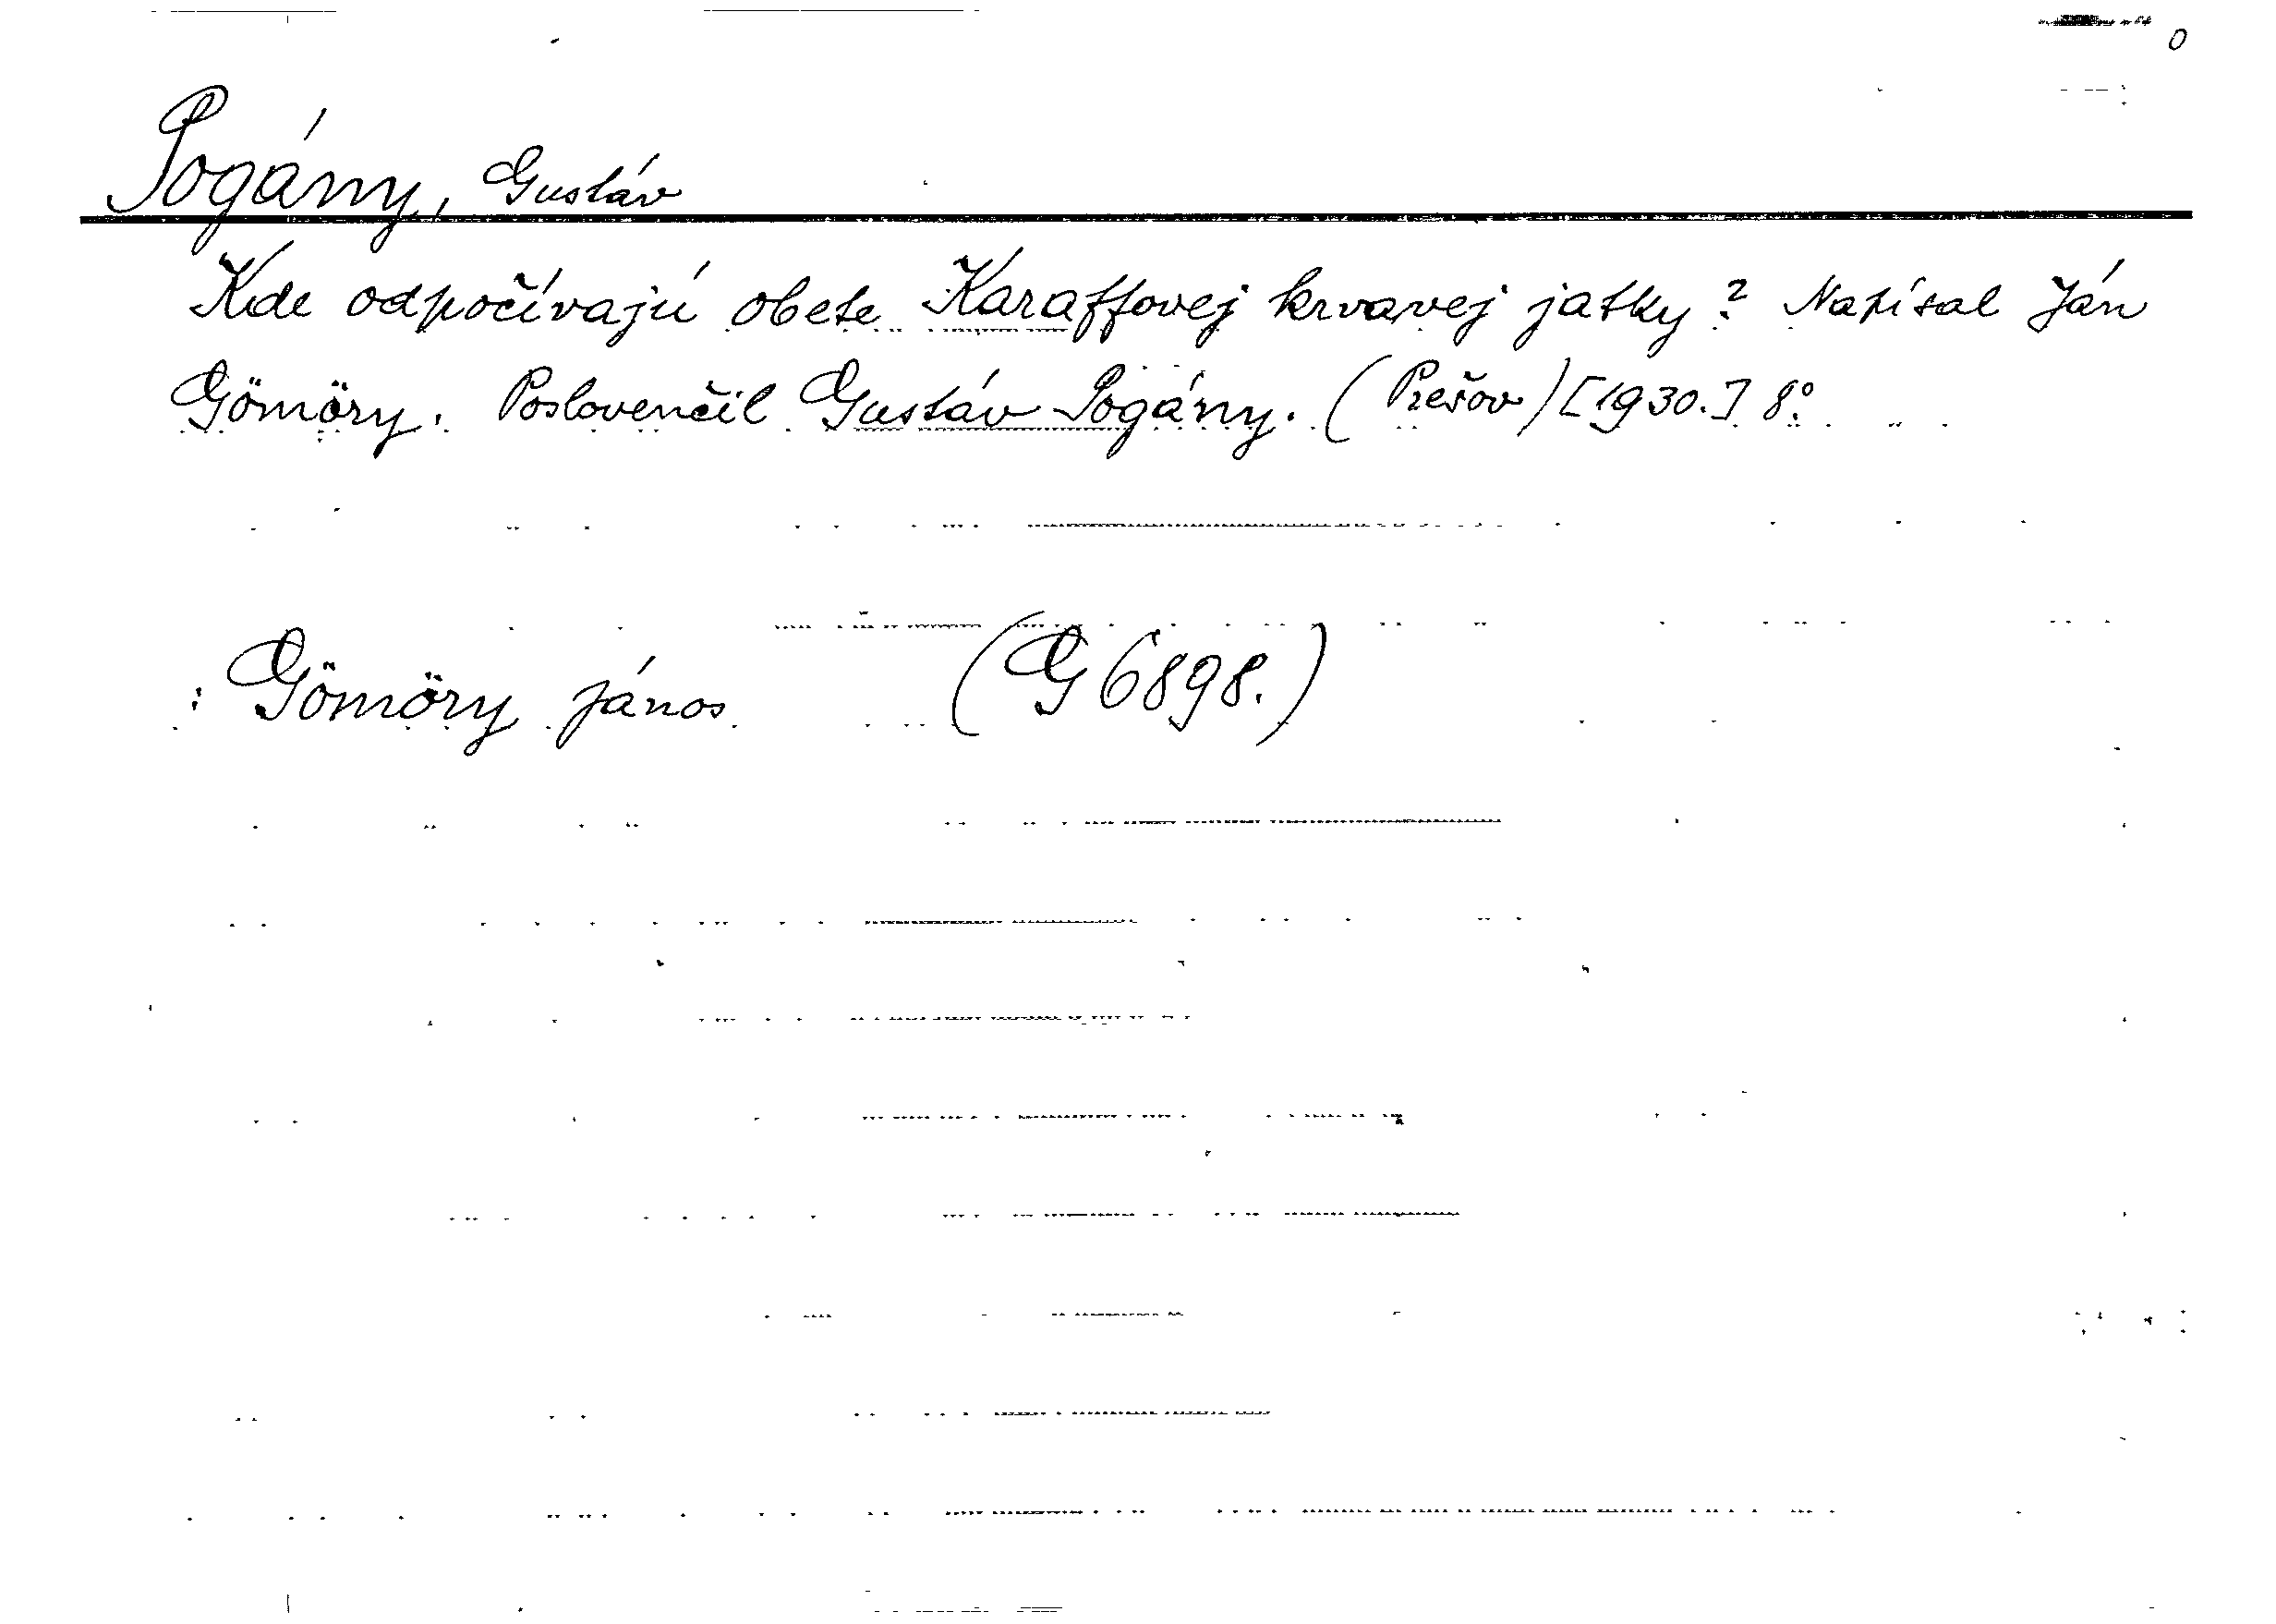 0
Pogány, Gustáv
Kde odpočívajú obete Karaffovej krvavej jatky? Napísal Ján
Gömöry. Poslovenčil Gustáv Pogány. (Prešov) [1930.] 8°.
: Gömöry János (G 6898.)